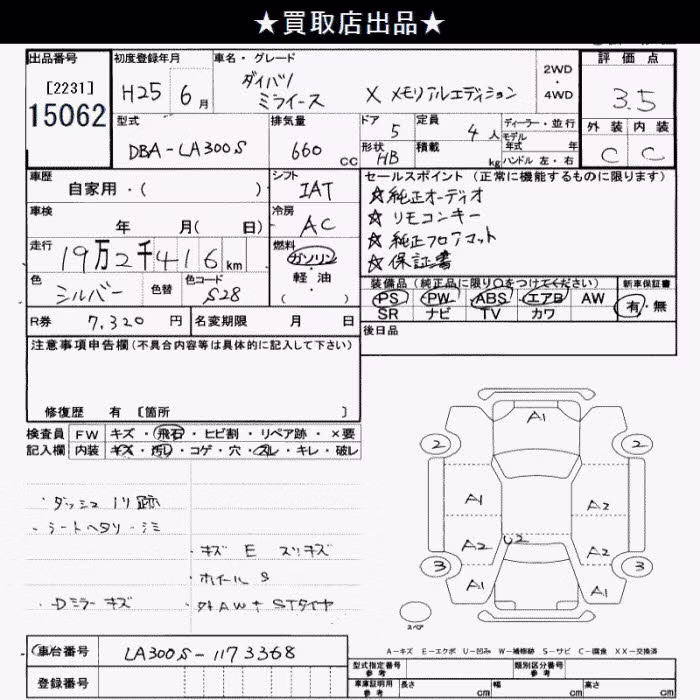 ★買取店出品★
出品番号 初度登録年月 車名・グレード 2WD・4WD 評価点
[2231] 15062
H25 6月 ダイハツ ミライース X メモリアルエディション
3.5
型式 排気量 ドア 定員 ディーラー・並行
DBA-LA300S 660 CC 5 4人 モデル年式 年式
形状 HB 積載 kg ハンドル 左・右
外装 内装
C C
車歴 シフト セールスポイント(正常に機能するものに限ります)
自家用・( ) IAT
☆純正オーディオ
車検 冷房
年 月( 日) AC
☆リモコンキー
☆純正フロアマット
☆保証書
走行 燃料
19万2千416km ガソリン・軽油・( )
色 色替 色コード
シルバー S28
装備品(純正品に限り○をつけてください) 新車保証書
PS PW ABS エアB AW 有・無
SR ナビ TV カワ
R券 7,320円 名変期限 月 日
後日品
注意事項申告欄(不具合内容等は具体的に記入して下さい)
修復歴 有 [箇所 ]
検査員 FW キズ・飛石・ヒビ割・リペア跡・×要
記入欄 内装 キズ・汚レ・コゲ・穴・スレ・キレ・破レ
・ダッシュ ノリ跡
・シートヘタリ・シミ
・キズ E スリキズ
・ホイール S
・Dミラーキズ
・社外AW+STタイヤ
A1
2 2
A1 A2
A2 U2 A2
3 3
A1 A1
スペア
A-キズ E-エクボ U-凹み W-補修跡 S-サビ C-腐食 XX-交換済
車台番号 LA300S-1173368
登録番号
型式指定番号 参考 類別区分番号 参考
車庫証明用 参考 長さ cm 幅 cm 高さ cm